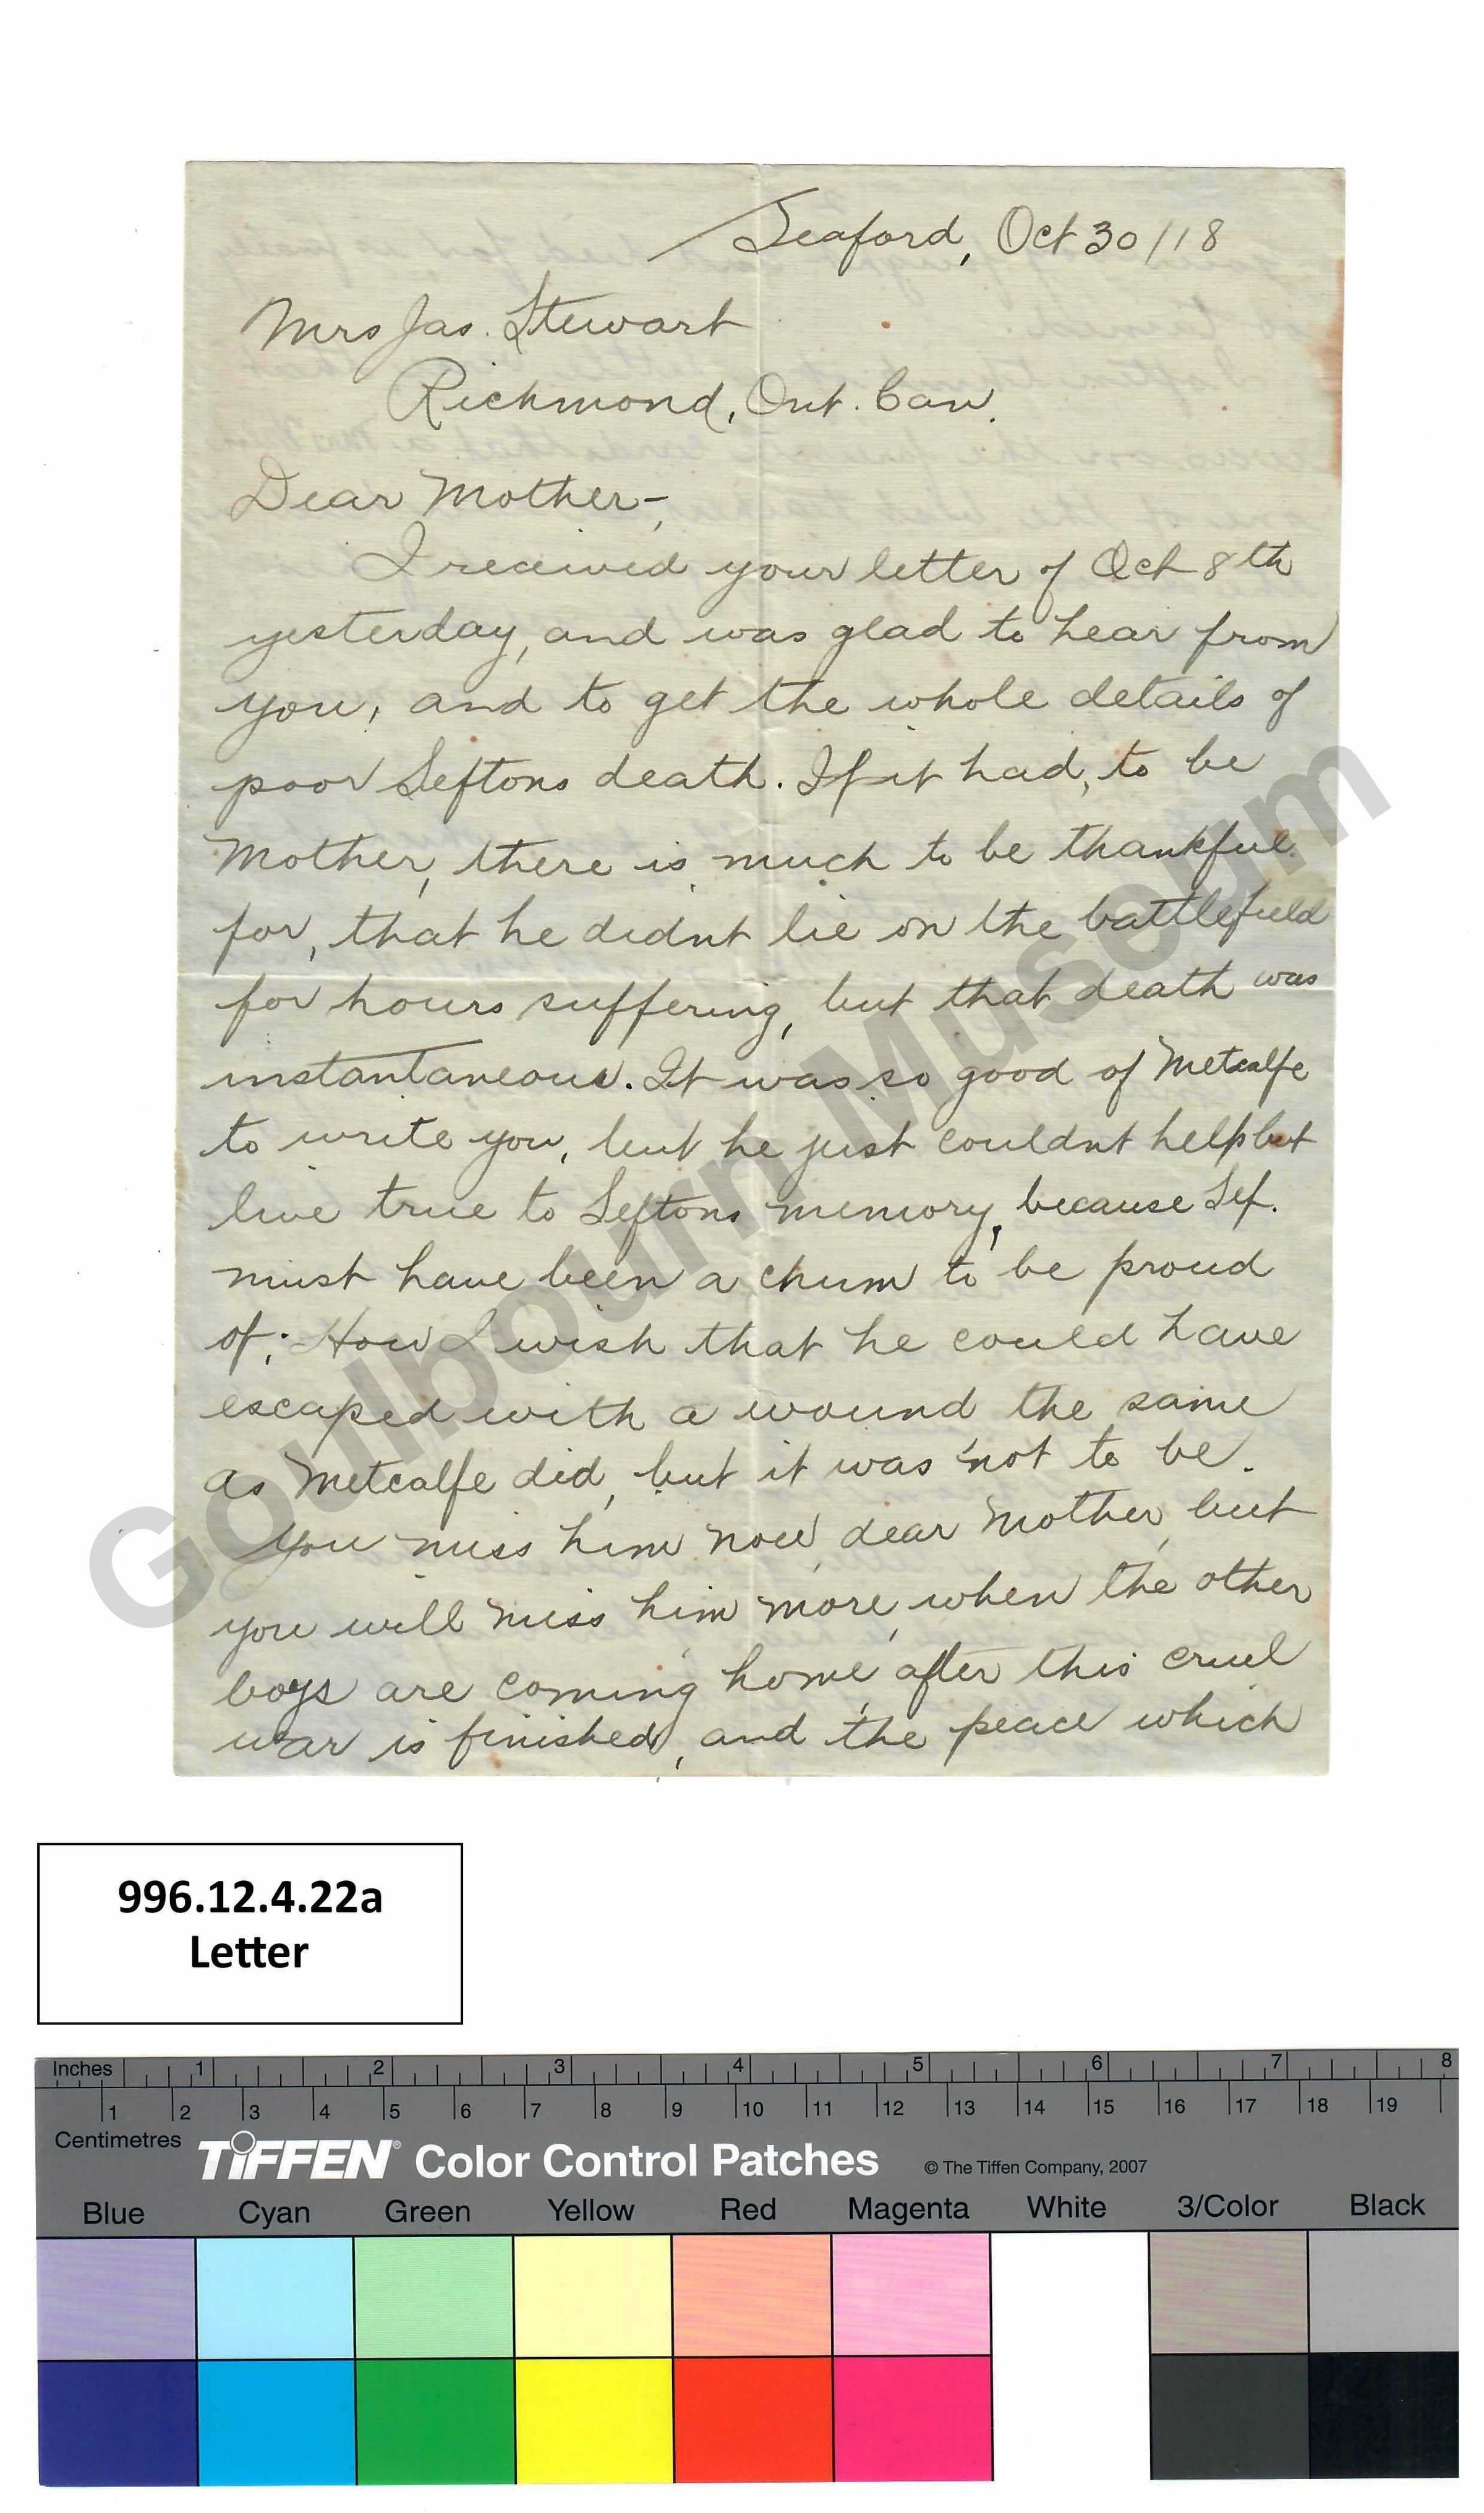 Seaford, Oct 30/18
Mrs Jas. Stewart
Richmond, Ont. Can.
Dear Mother-,
I received your letter of Oct 8th
yesterday, and was glad to hear from
you, and to get the whole details of
poor Seftons death. If it had, to be
Mother, there is much to be thankful
for, that he didnt lie on the battlefield
for hours suffering, but that death was
instantaneous. It was so good of Metcalfe
to write you, but he just couldnt help but
live true to Seftons memory, because Sef.
must have been a chum to be proud
of; How I wish that he could have
escaped with a wound the same
as Metcalfe did, but it was not to be.
You miss him now, dear Mother, but
you will miss him more, when the other
boys are coming home, after this cruel
war is finished, and the peace which
Goulbourn Museum
996.12.4.22a
Letter
Inches 1 2 3 4 5 6 7 8
1 2 3 4 5 6 7 8 9 10 11 12 13 14 15 16 17 18 19
Centimetres
TIFFEN® Color Control Patches © The Tiffen Company, 2007
Blue Cyan Green Yellow Red Magenta White 3/Color Black